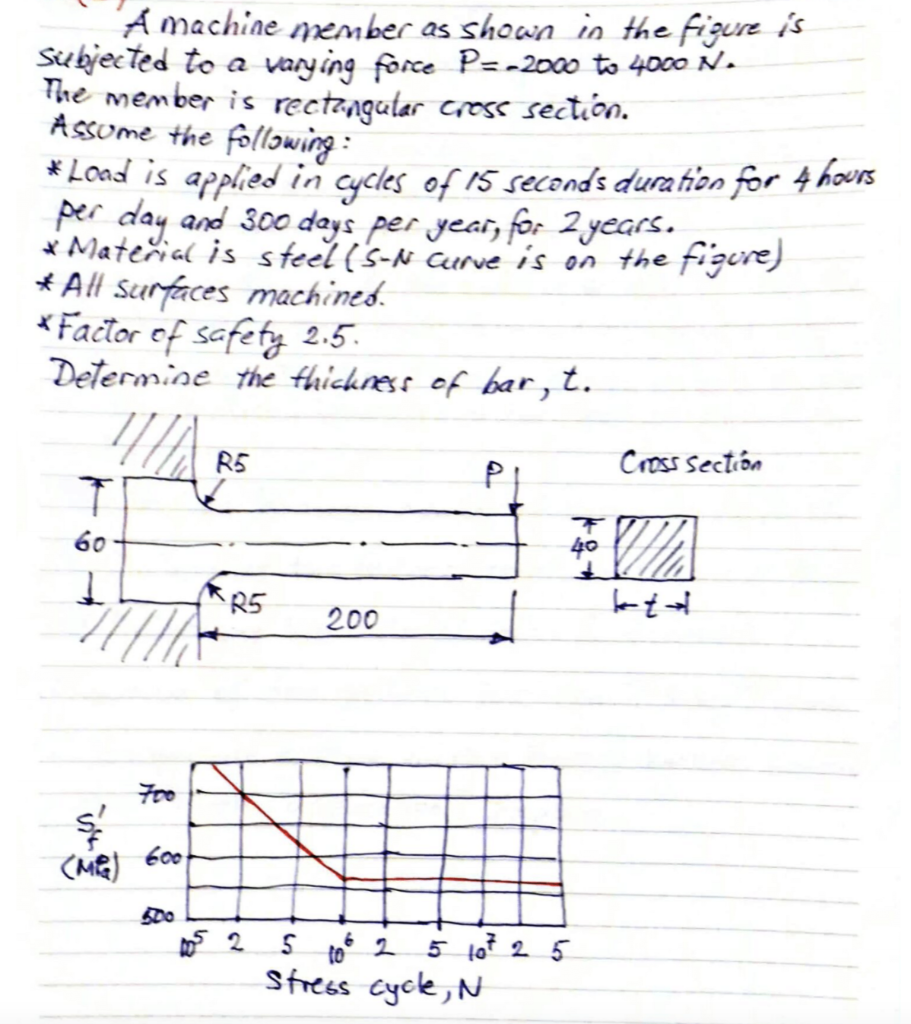 A machine member as shown in the figure is
subjected to a varying force P=-2000 to 4000 N.
The member is rectangular cross section.
Assume the following:
*Load is applied in cycles of 15 seconds duration for 4 hours
per day and 300 days per year, for 2 years.
*Material is steel (S-N curve is on the figure)
*All surfaces machined.
*Factor of safety 2.5.
Determine the thickness of bar, t.
R5
P
Cross section
60
40
R5
200
t
700
S'f
(MPa)
600
500
10^5 2 5 10^6 2 5 10^7 2 5
Stress cycle, N